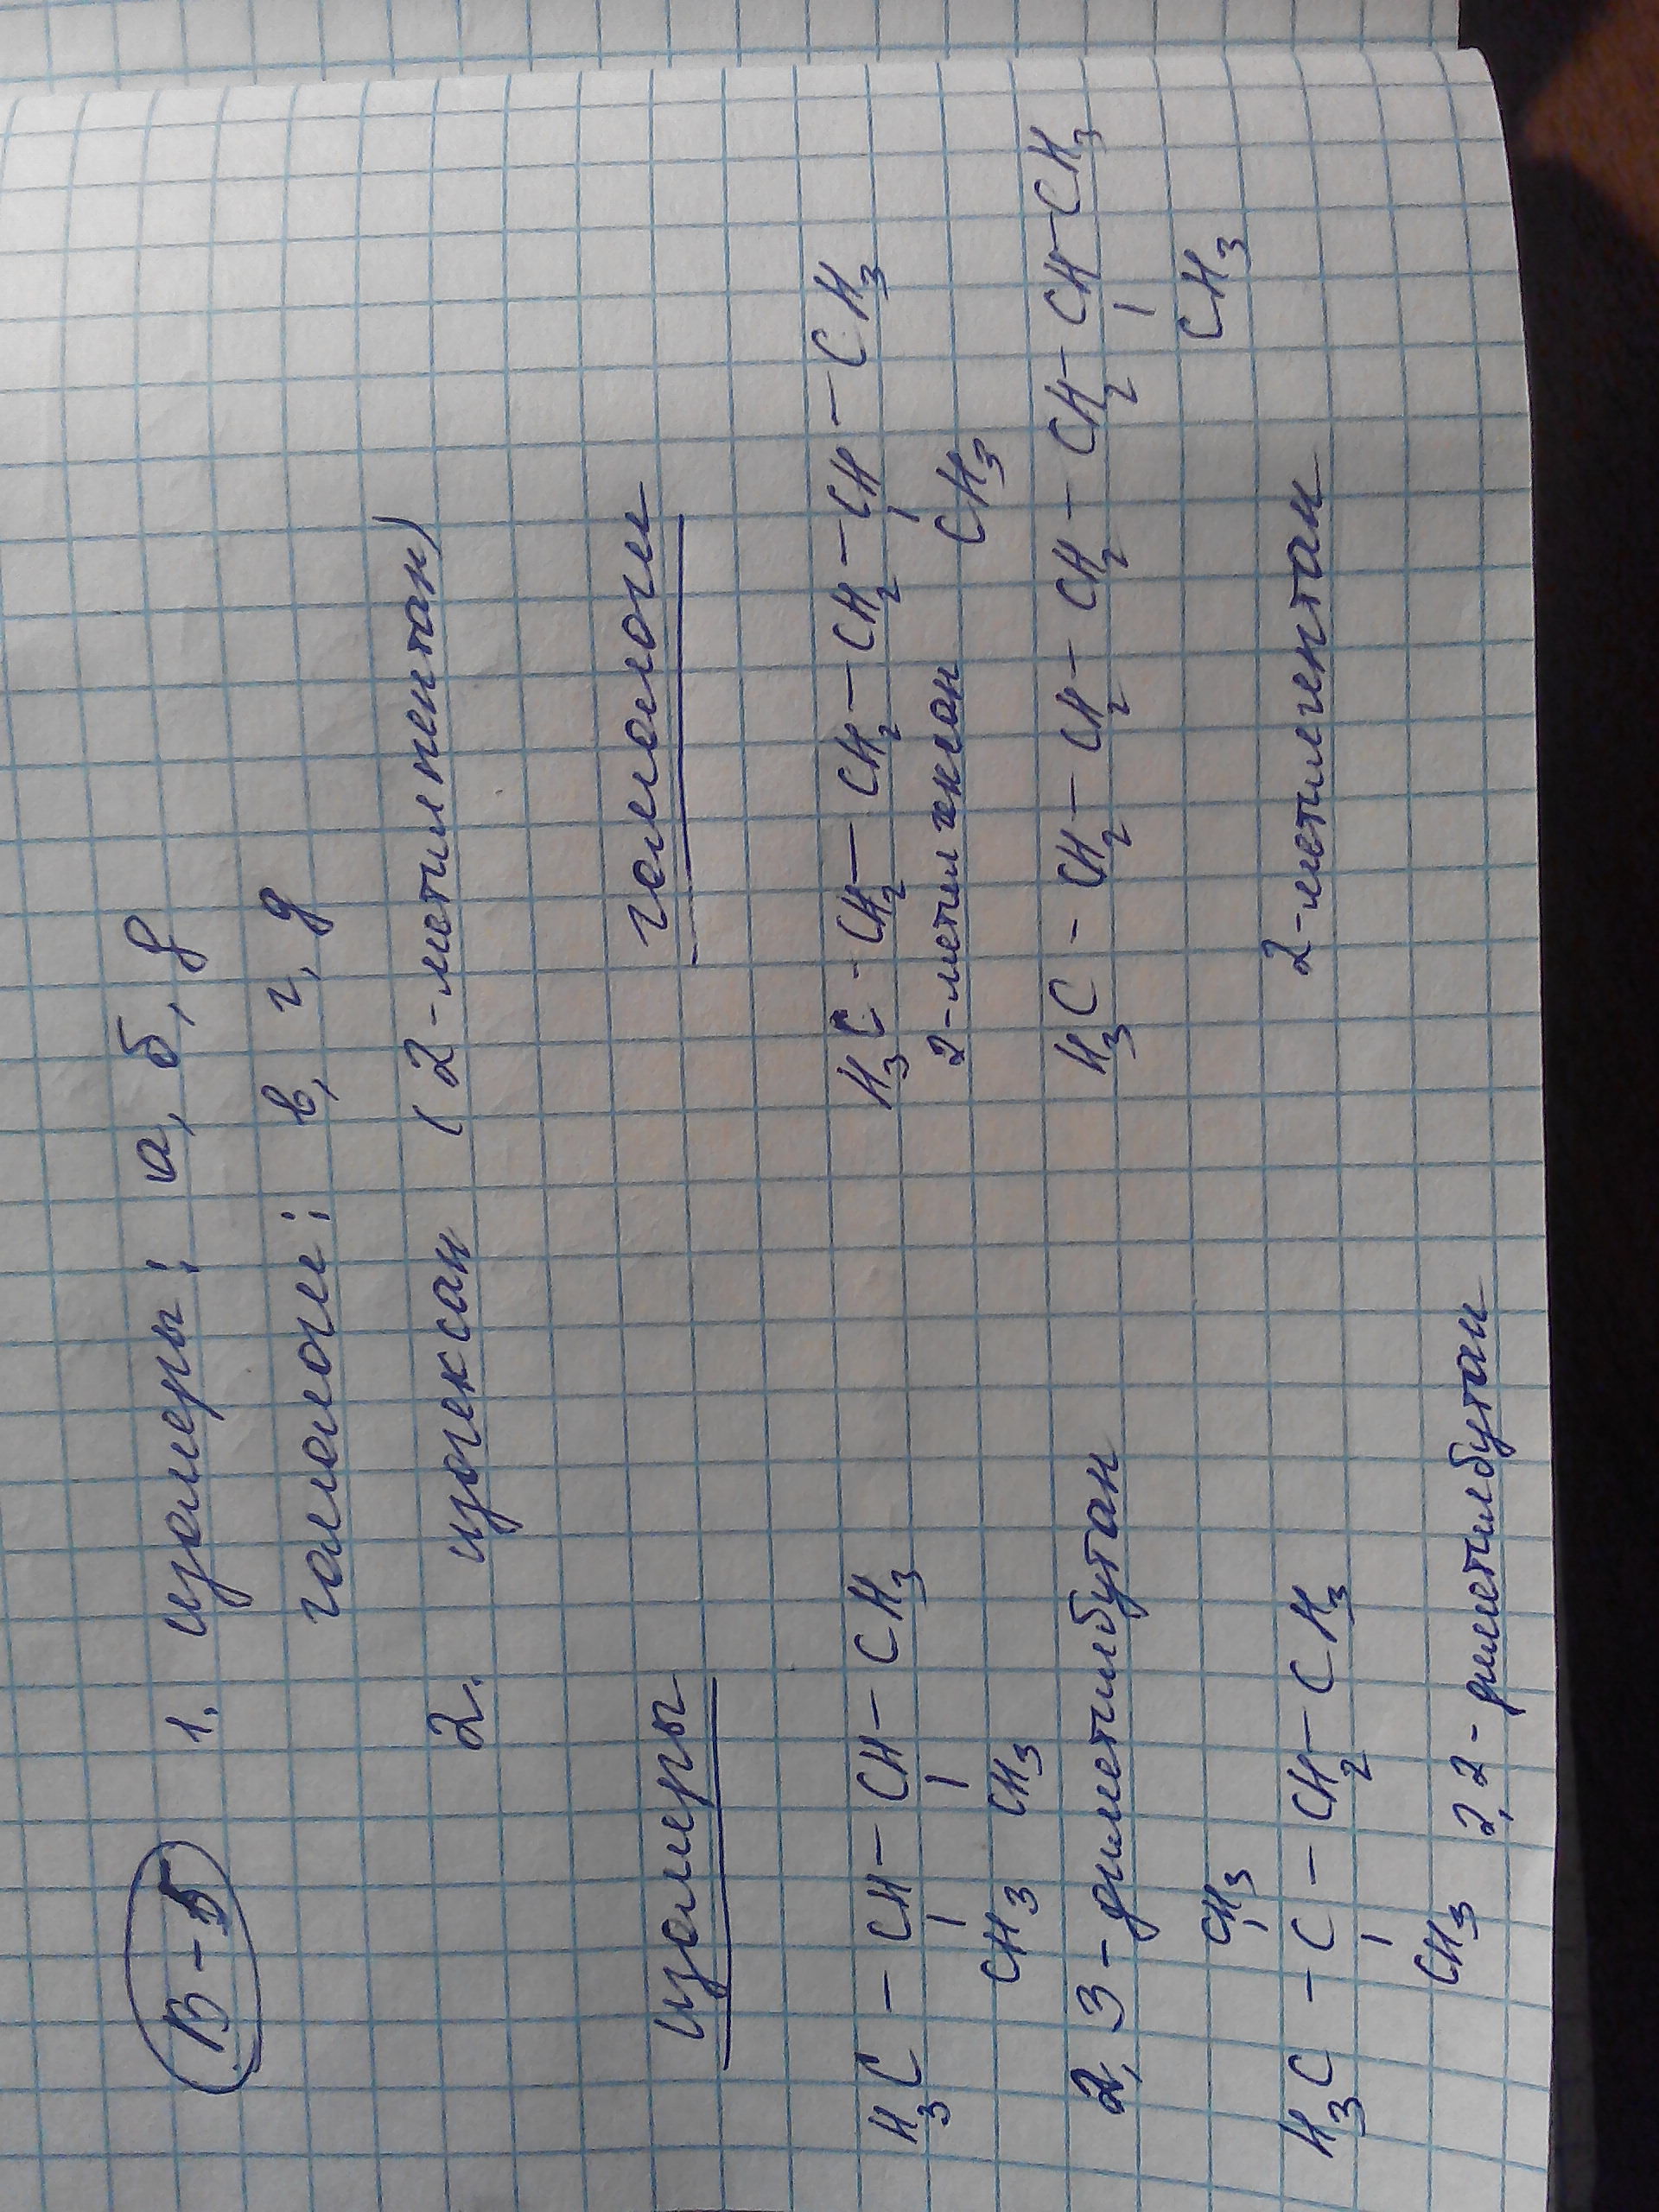 В-5
1. изомеры: а, б, е
гомологи: в, г, д
2. изогексан (2-метилпентан)
изомеры
H3C - CH - CH - CH3
CH3 CH3
2,3-диметилбутан
CH3
H3C - C - CH2 - CH3
CH3
2,2-диметилбутан
гомологи
H3C - CH2 - CH2 - CH2 - CH - CH3
CH3
2-метилгексан
H3C - CH2 - CH2 - CH2 - CH2 - CH - CH3
CH3
2-метилгептан